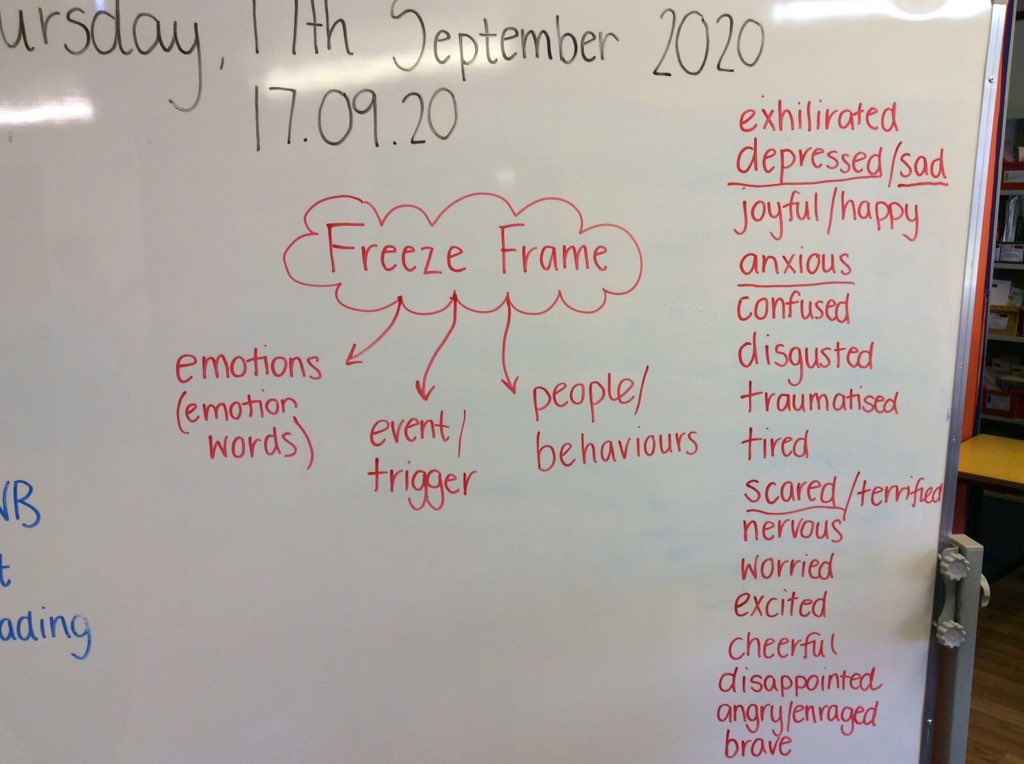 ursday, 17th September 2020
17.09.20
Freeze Frame
emotions
(emotion
words)
event/
trigger
people/
behaviours
exhilirated
depressed/sad
joyful/happy
anxious
confused
disgusted
traumatised
tired
scared/terrified
nervous
worried
excited
cheerful
disappointed
angry/enraged
brave
NB
t
ading